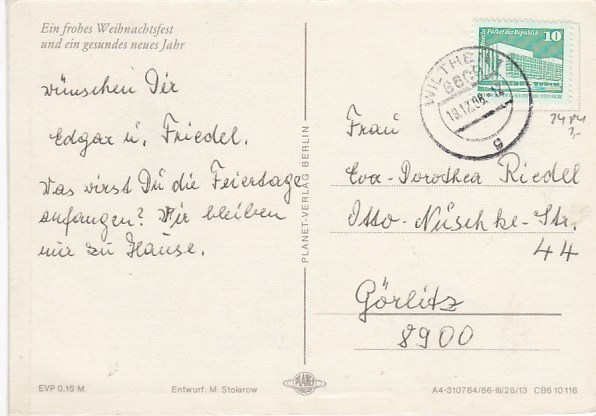 Ein frohes Weihnachtsfest
und ein gesundes neues Jahr
wünschen Dir
Edgar u. Friedel.
Was wirst Du die Feiertage
anfangen? Wir bleiben
nur zu Hause.
Palast der Republik 10
WILTHEN
8605
19.12.86
g
Frau
Eva-Dorothea Riedel
Otto-Nuschke-Str.
44
Görlitz
8900
PLANET-VERLAG BERLIN
EVP 0,15 M
Entwurf: M. Stolarow
PLANET
A4-310764/86-III/26/13 CB6 10 116